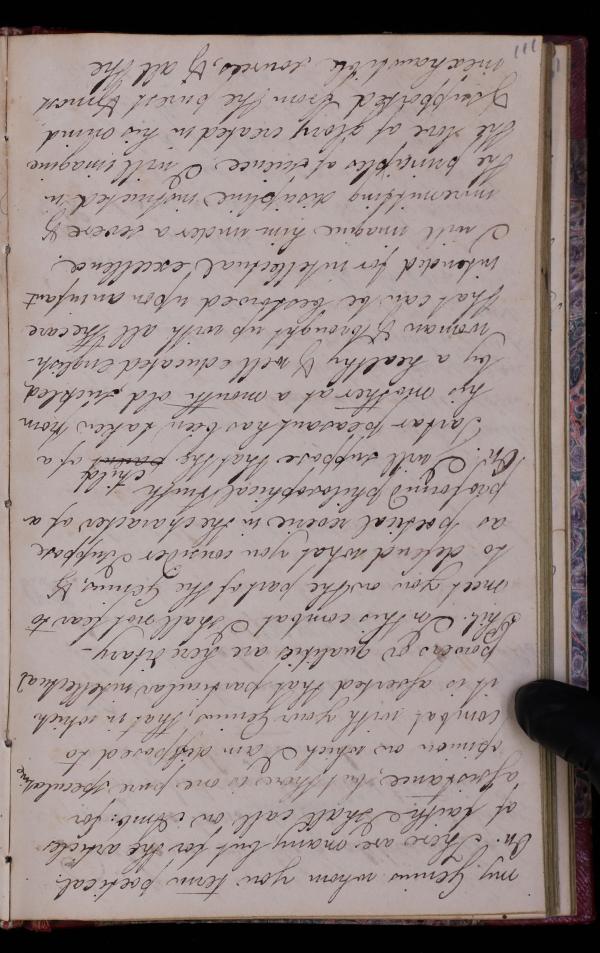 my Genius whom you term poetical.
On. There are many but for the articles
of faith I shall call on Amb: for
assistance, but there is one pure speculative
opinion on which I am disposed to
combat with your Genius, that in which
it is asserted that particular intellectual
powers or qualities are hereditary –
Phil. In this combat I shall not fear to
meet you on the part of the Genius, &
to defend what you consider I suppose
as poetical reverie in the character of a
profound philosophical truth.
On. I will suppose that the parent child of a
Tartar peasant has been taken from
his mother at a month old, suckled
by a healthy & well educated english-
woman & brought up with all the care
that can be bestowed upon an infant
intended for intellectual excellence.
I will imagine him under a severe &
unremitting discipline instructed in
the principles of science. I will imagine
the love of glory created in his mind
& supported from the purest & most
inexhaustible sources, & all the
111